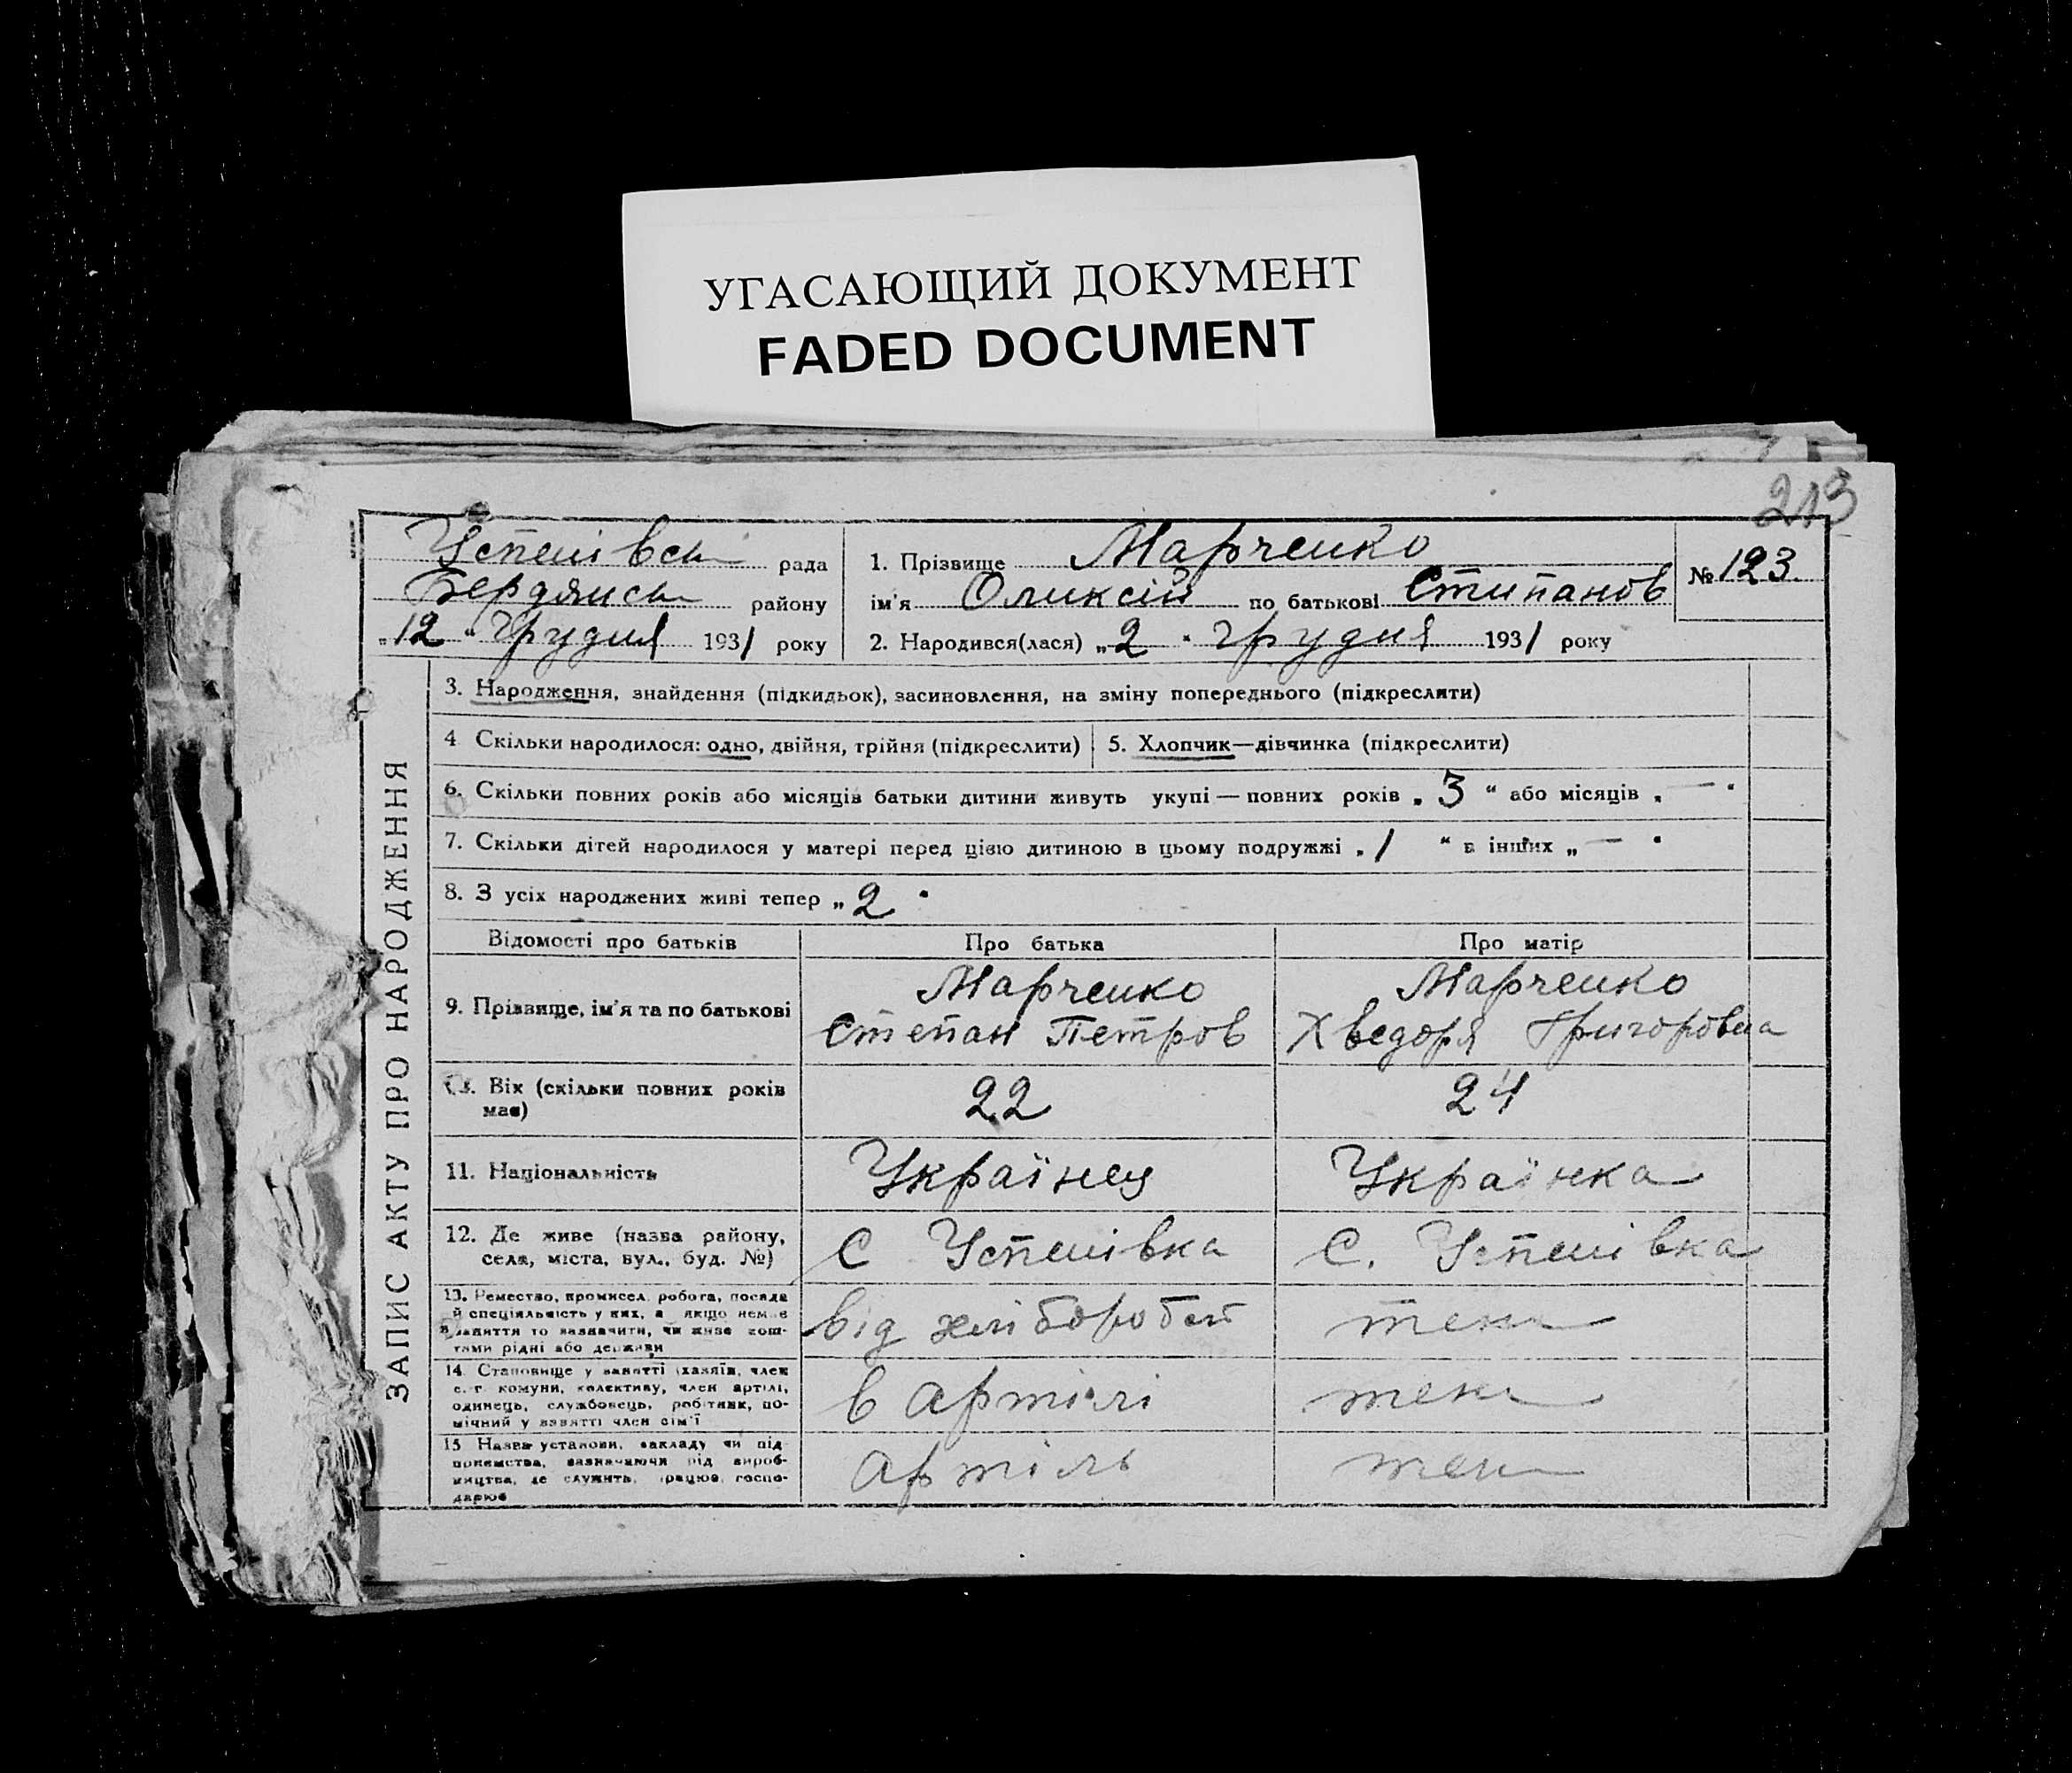 УГАСАЮЩИЙ ДОКУМЕНТ
FADED DOCUMENT
213
Успенівськ рада
Бердянськ району
„12“ Грудня 1931 року
1. Прізвище Марченко
ім'я Оликсій по батькові Стипанов
№ 123.
2. Народився(лася) „2“ грудня 1931 року
ЗАПИС АКТУ ПРО НАРОДЖЕННЯ
3. Народження, знайдення (підкидьок), засиновлення, на зміну попереднього (підкреслити)
4 Скільки народилося: одно, двійня, трійня (підкреслити)
5. Хлопчик—дівчинка (підкреслити)
6. Скільки повних років або місяців батьки дитини живуть укупі — повних років „3“ або місяців „—“
7. Скільки дітей народилося у матері перед цією дитиною в цьому подружжі „1“ в інших „—“
8. З усіх народжених живі тепер „2“
Відомості про батьків Про батька Про матір
9. Прізвище, ім'я та по батькові
Марченко
Степан Петров
Марченко
Хведоря Григоровна
Вік (скільки повних років має)
22 24
11. Національність Українец Українка
12. Де живе (назва району,
села, міста, вул., буд. №)
С Успенівка С. Успенівка
13. Ремество, промисел, робота, посада
й спеціяльність у них, а якщо немає
заняття то зазначити, чи живе кош-
тами рідні або держави
від хліборобст теж
14. Становище у занятті (хазяїн, член
с.-г. комуни, колективу, член артілі,
одинець, службовець, робітник, по-
мічний у занятті член сім'ї
в артілі теж
15 Назва установи, закладу чи під-
приємства, зазначаючи рід вироб-
ництва, де служить, працює, госпо-
дарює
артіль теж